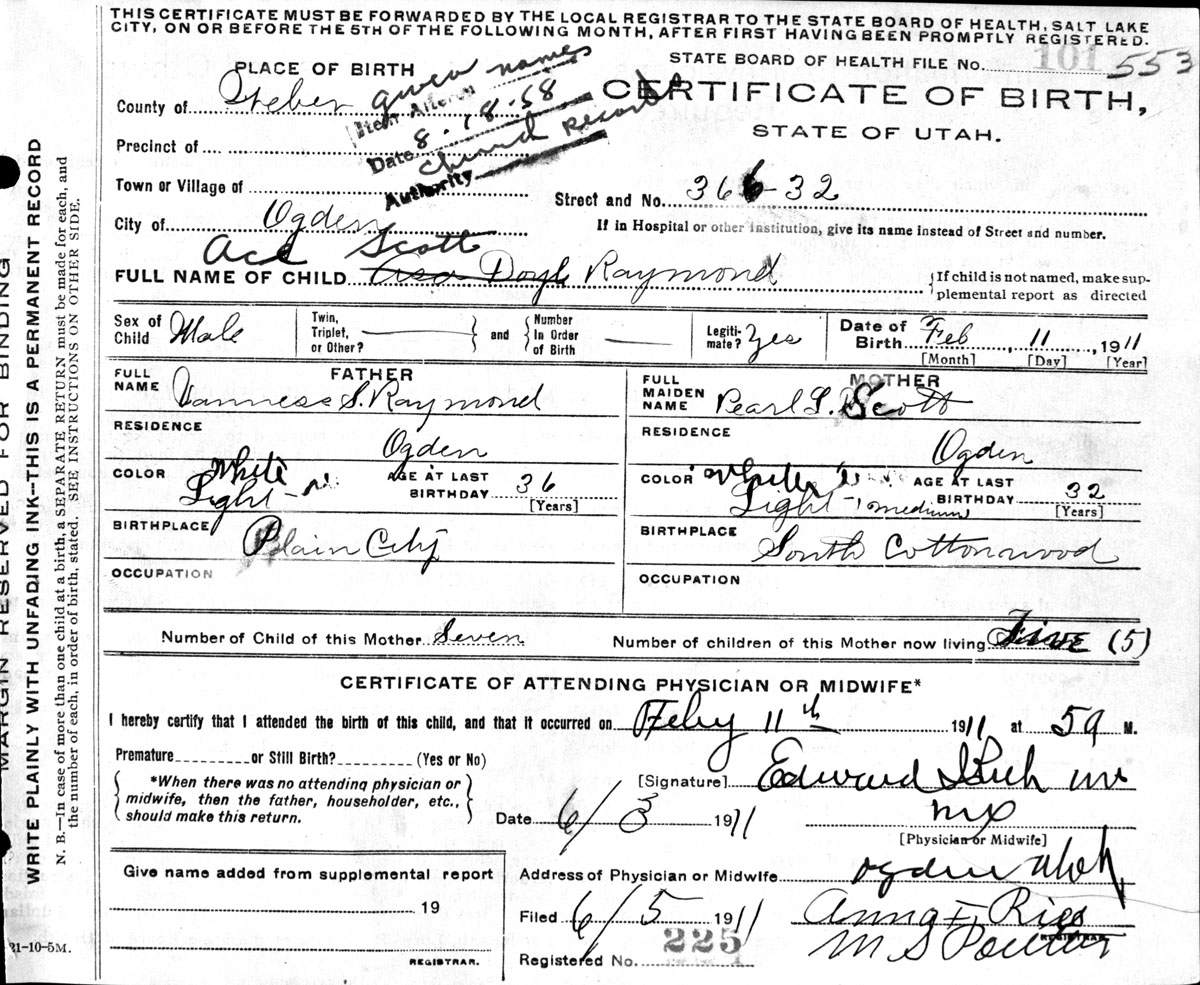 THIS CERTIFICATE MUST BE FORWARDED BY THE LOCAL REGISTRAR TO THE STATE BOARD OF HEALTH, SALT LAKE
CITY, ON OR BEFORE THE 5TH OF THE FOLLOWING MONTH, AFTER FIRST HAVING BEEN PROMPTLY REGISTERED.
STATE BOARD OF HEALTH FILE No. 101 553
PLACE OF BIRTH
given names
County of Weber
Item Altered
Date 8-18-58
Church Records
Authority
CERTIFICATE OF BIRTH,
STATE OF UTAH.
Precinct of
Town or Village of
Street and No. 366-32
City of Ogden
If in Hospital or other institution, give its name instead of Street and number.
Ace Scott
FULL NAME OF CHILD Asa Doyle Raymond
{If child is not named, make sup-
plemental report as directed
Sex of Child Male
Twin, Triplet, or Other?
and
Number In Order of Birth
Legiti-mate? Yes
Date of Birth Feb, 11, 1911
[Month] [Day] [Year]
FATHER
FULL NAME Vanness S. Raymond
RESIDENCE
Ogden
COLOR White
Light
AGE AT LAST BIRTHDAY 36
[Years]
BIRTHPLACE
Plain City
OCCUPATION
MOTHER
FULL MAIDEN NAME Pearl L. Scott
RESIDENCE
Ogden
COLOR White
Light medium
AGE AT LAST BIRTHDAY 32
[Years]
BIRTHPLACE
South Cottonwood
OCCUPATION
Number of Child of this Mother Seven
Number of children of this Mother now living Five (5)
CERTIFICATE OF ATTENDING PHYSICIAN OR MIDWIFE*
I hereby certify that I attended the birth of this child, and that it occurred on Feby 11th 1911 at 5 a M.
Premature or Still Birth? (Yes or No)
*When there was no attending physician or
midwife, then the father, householder, etc.,
should make this return.
[Signature] Edward
Date 6/3 1911
[Physician or Midwife]
Give name added from supplemental report
19
REGISTRAR.
Address of Physician or Midwife Ogden Utah
Filed 6/5 1911 Anna F. Ries
Registered No. 225
M S
REGISTRAR
MARGIN RESERVED FOR BINDING
WRITE PLAINLY WITH UNFADING INK—THIS IS A PERMANENT RECORD
N. B.—In case of more than one child at a birth, a SEPARATE RETURN must be made for each, and
the number of each, in order of birth, stated. SEE INSTRUCTIONS ON OTHER SIDE.
21-10-5M.